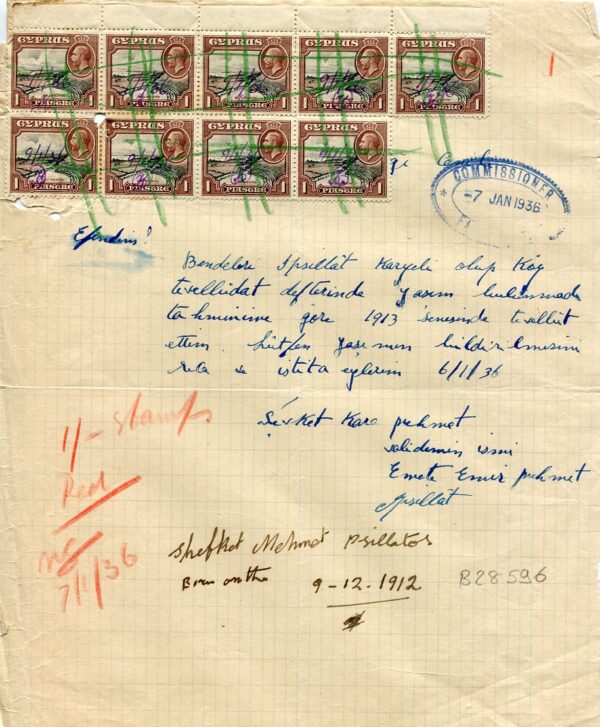 CYPRUS CYPRUS CYPRUS CYPRUS CYPRUS
1 PIASTRE 1 1 PIASTRE 1 1 PIASTRE 1 1 PIASTRE 1 1 PIASTRE 1
CYPRUS CYPRUS CYPRUS CYPRUS
1 PIASTRE 1 1 PIASTRE 1 1 PIASTRE 1 1 PIASTRE 1
COMMISSIONER
-7 JAN 1936
Efendim!
Bendeleri Ipsillât Karyeli olup Köy
tevellüdat defterinde yasım bulunmada
tahminime göre 1913 senesinde tevellüt
ettim. Lütfen yasımın bildirilmesini
rica ve istita eylerim 6/1/36
Şevket Kara Mehmet
validemin ismi
Emete Emir Mehmet
Ipsillât
1/- stamps
Red.
7/1/36
Shefket Mehmet Psillatos
Born on the 9-12-1912
B28596